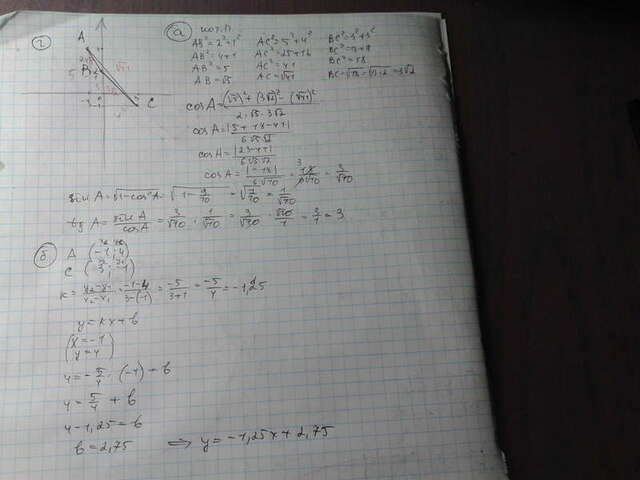 2
а
A
B
C
5
AB² = 2² + 1²
AC² = 5² + 4²
BC² = 3² + 3²
AB² = 4 + 1
AC² = 25 + 16
BC² = 9 + 9
AB² = 5
AC² = 41
BC² = 18
AB = √5
AC = √41
BC = √18 = √9·2 = 3√2
cosA = (√5)² + (3√2)² - (√41)² / 2·√5·3√2
cosA = |5 + 18 - 41| / 6√5√2
cosA = |23 - 41| / 6√5√2
cosA = |-18| / 6√10 = 18 / 6√10 = 3 / √10
sin A = √1 - cos²A = √1 - 9/10 = √1/10 = 1/√10
tg A = sin A / cos A = 3/√10 : 1/√10 = 3/√10 · √10/1 = 3/1 = 3
б
A (-1; 4)
C (3; -1)
k = y₂-y₁ / x₂-x₁ = -1-4 / 3-(-1) = -5 / 3+1 = -5/4 = -1,25
y = kx + b
(x = -1
y = 4)
4 = -5/4 · (-1) + b
4 = 5/4 + b
4 - 1,25 = b
b = 2,75 ⇒ y = -1,25x + 2,75